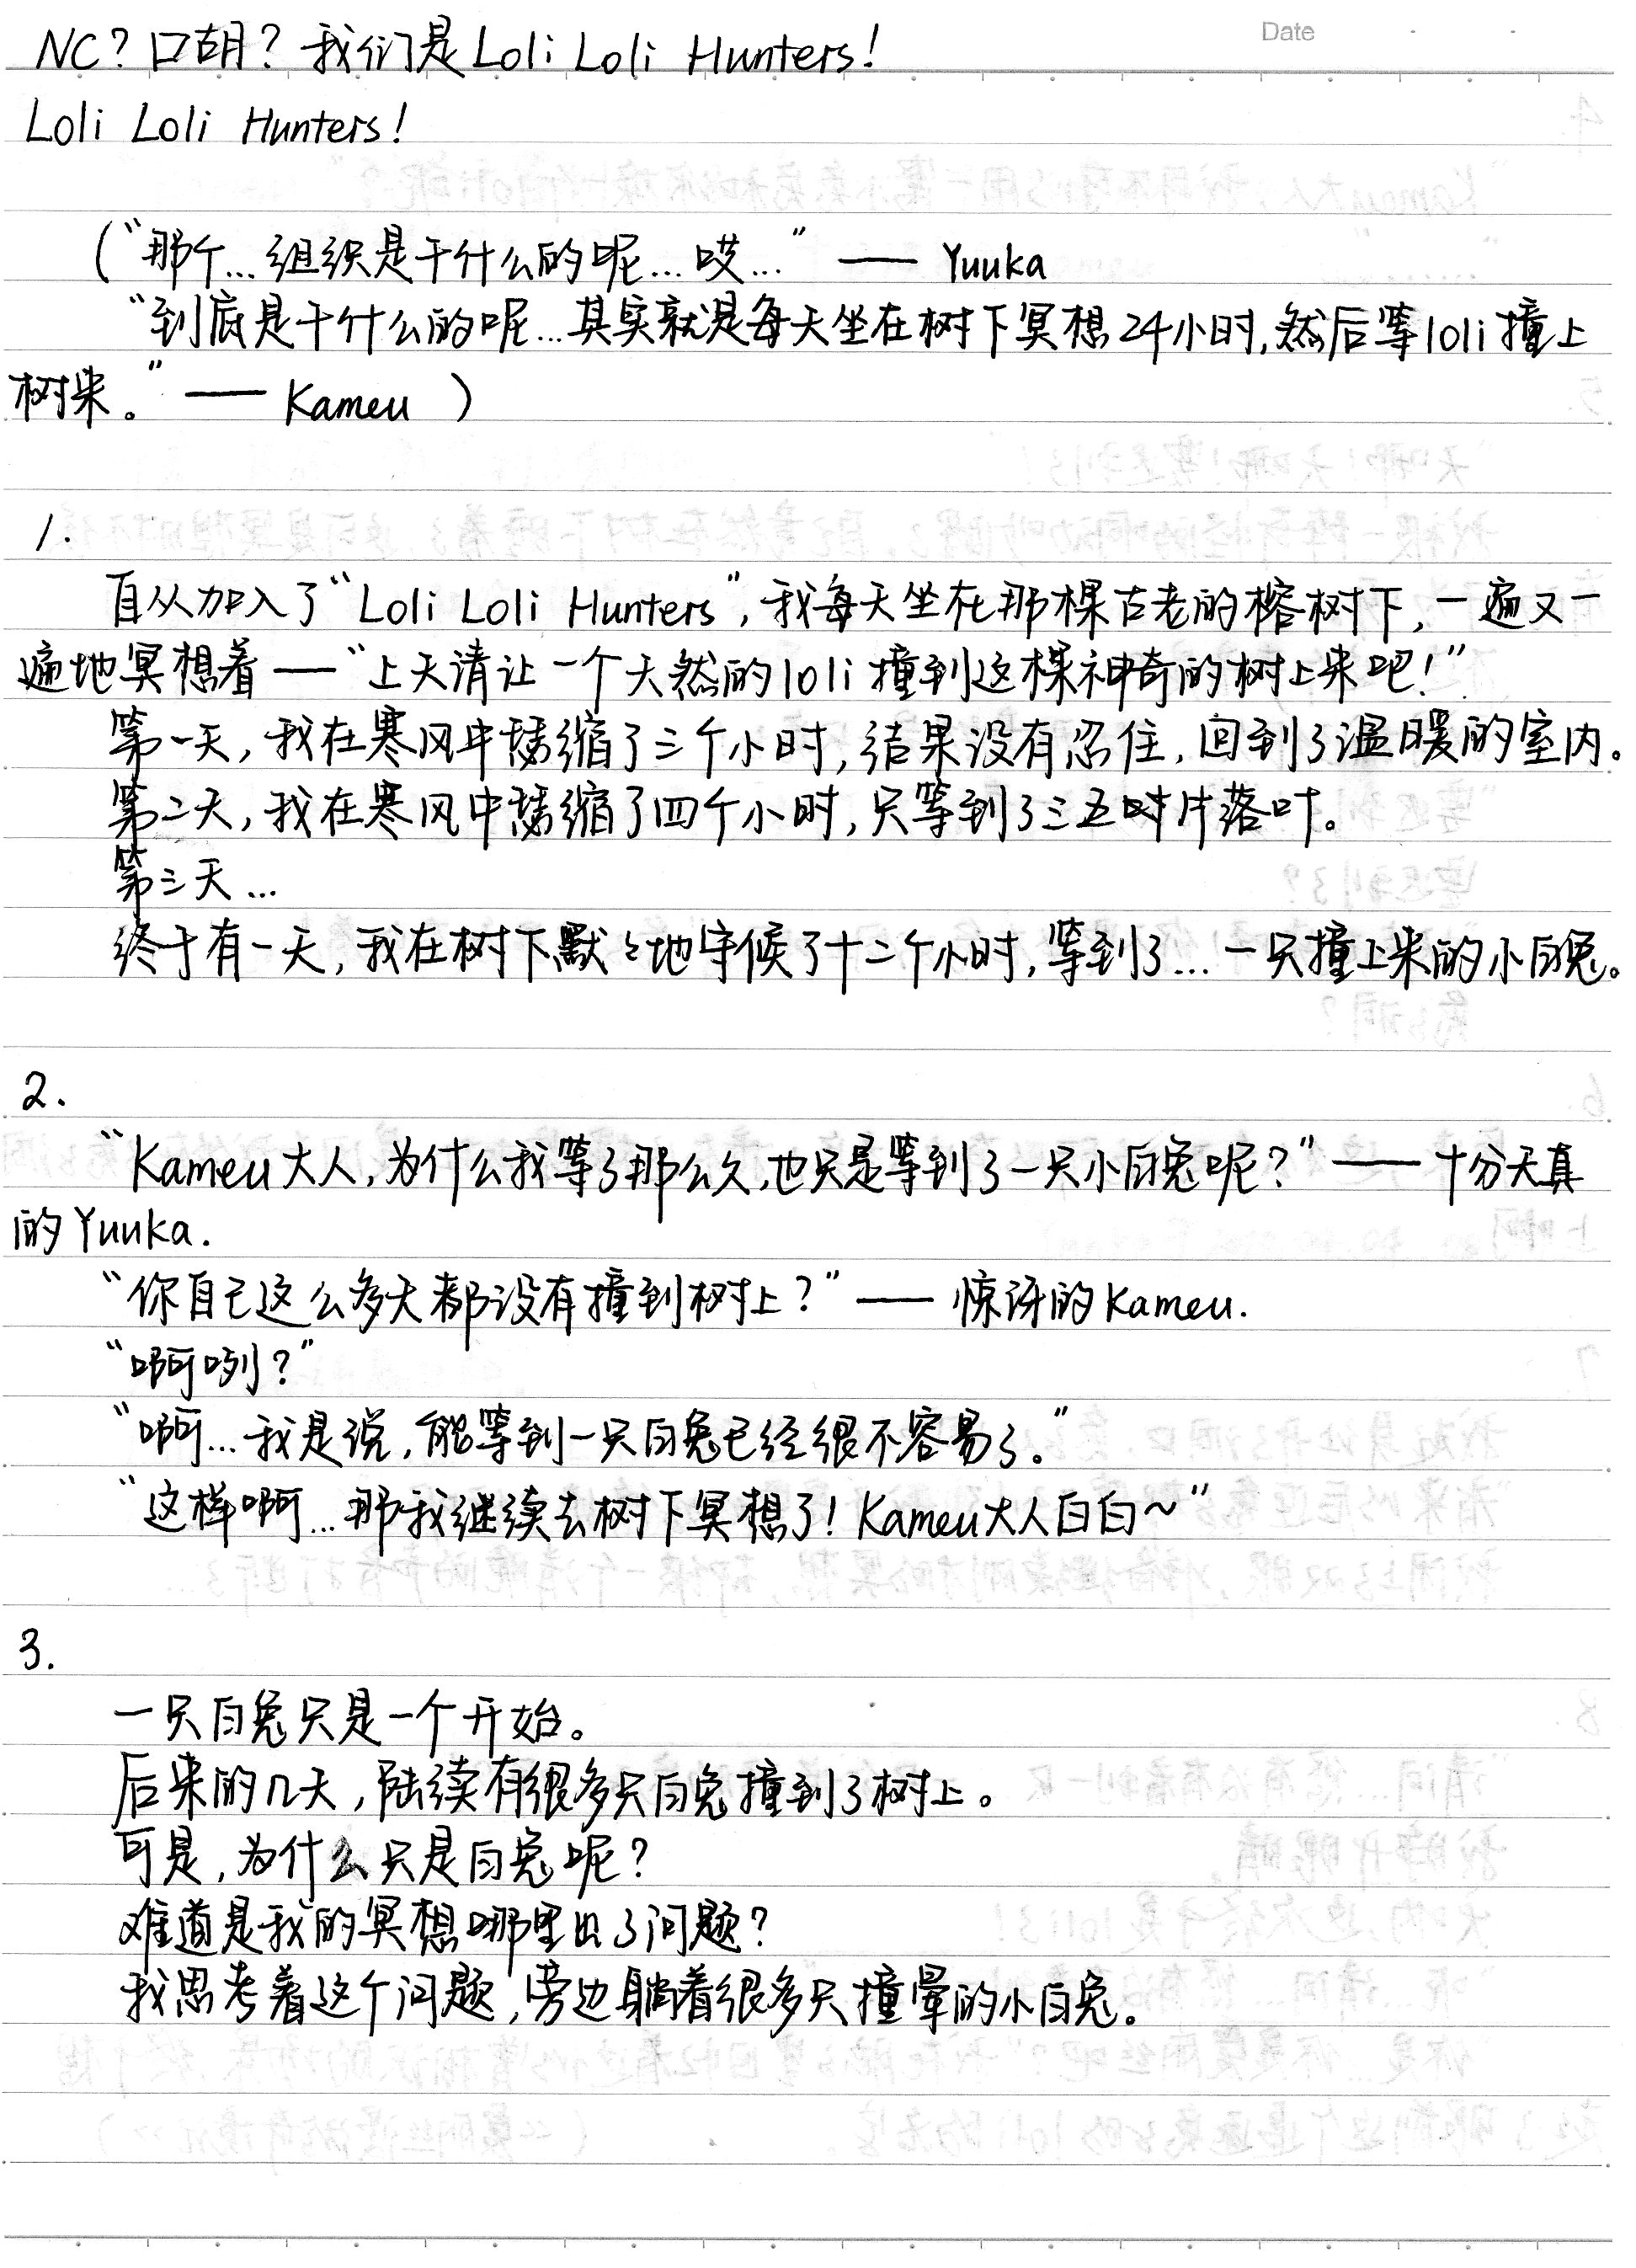 Date
NC？口胡？我们是Loli Loli Hunters！
Loli Loli Hunters！
（“那个…组织是干什么的呢…哎…” —— Yuuka
“到底是干什么的呢…其实就是每天坐在树下冥想24小时,然后等loli撞上
树来。” —— Kameu ）
1.
自从加入了“Loli Loli Hunters”,我每天坐在那棵古老的榕树下,一遍又一
遍地冥想着——“上天请让一个天然的loli撞到这棵神奇的树上来吧！”
第一天,我在寒风中瑟缩了三个小时,结果没有忍住,回到了温暖的室内。
第二天,我在寒风中瑟缩了四个小时,只等到了三五片落叶。
第三天…
终于有一天,我在树下默々地守候了十二个小时,等到了…一只撞上来的小白兔。
2.
“Kameu大人,为什么我等了那么久,也只是等到了一只小白兔呢？”——十分天真
的Yuuka.
“你自己这么多天都没有撞到树上？”——惊讶的Kameu.
“啊咧？”
“啊…我是说,能等到一只白兔已经很不容易了。”
“这样啊…那我继续去树下冥想了！Kameu大人白白～”
3.
一只白兔只是一个开始。
后来的几天,陆续有很多只白兔撞到了树上。
可是,为什么只是白兔呢？
难道是我的冥想哪里出了问题？
我思考着这个问题,旁边躺着很多只撞晕的小白兔。